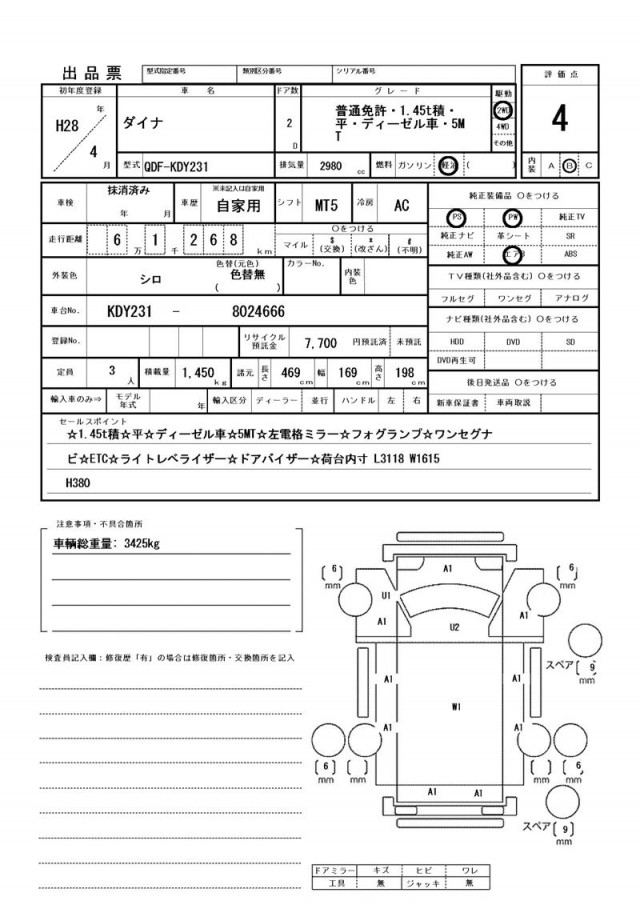 出品票
型式指定番号 類別区分番号 シリアル番号
評価点
4
内装 A B C
初年度登録 車名 ドア数 グレード 駆動
H28 年 4 月
ダイナ
2 D
普通免許・1.45t積・
平・ディーゼル車・5M
T
2WD
4WD
その他
型式 QDF-KDY231 排気量 2980 cc 燃料 ガソリン 軽油 ( )
車検 抹消済み 年 月 車歴 ※未記入は自家用 自家用 シフト MT5 冷房 AC
走行距離 6 万 1 千 2 6 8 km
○をつける
マイル $(交換) *(改ざん) #(不明)
外装色 シロ 色替(元色) 色替無 ( ) カラーNo. 内装色
車台No. KDY231 - 8024666
登録No. リサイクル預託金 7,700 円預託済 未預託
定員 3 人 積載量 1,450 kg 諸元 長さ 469 cm 幅 169 cm 高さ 198 cm
輸入車のみ⇒ モデル年式 年 輸入区分 ディーラー 並行 ハンドル 左 右
純正装備品 ○をつける
PS PW 純正TV
純正ナビ 革シート SR
純正AW エアB ABS
TV種類(社外品含む) ○をつける
フルセグ ワンセグ アナログ
ナビ種類(社外品含む) ○をつける
HDD DVD SD
DVD再生可
後日発送品 ○をつける
新車保証書 車両取説
セールスポイント
☆1.45t積☆平☆ディーゼル車☆5MT☆左電格ミラー☆フォグランプ☆ワンセグナ
ビ☆ETC☆ライトレベライザー☆ドアバイザー☆荷台内寸 L3118 W1615
H380
注意事項・不具合箇所
車輌総重量: 3425kg
検査員記入欄:修復歴「有」の場合は修復箇所・交換箇所を記入
A1
( 6 ) mm
( 6 ) mm
U1
A1
A1
U2
スペア ( 9 ) mm
A1
A1
W1
A1
A1
( 6 ) mm
( ) mm
( ) mm
( 6 ) mm
A1 A1
スペア ( 9 ) mm
ドアミラー キズ ヒビ ワレ
工具 無 ジャッキ 無